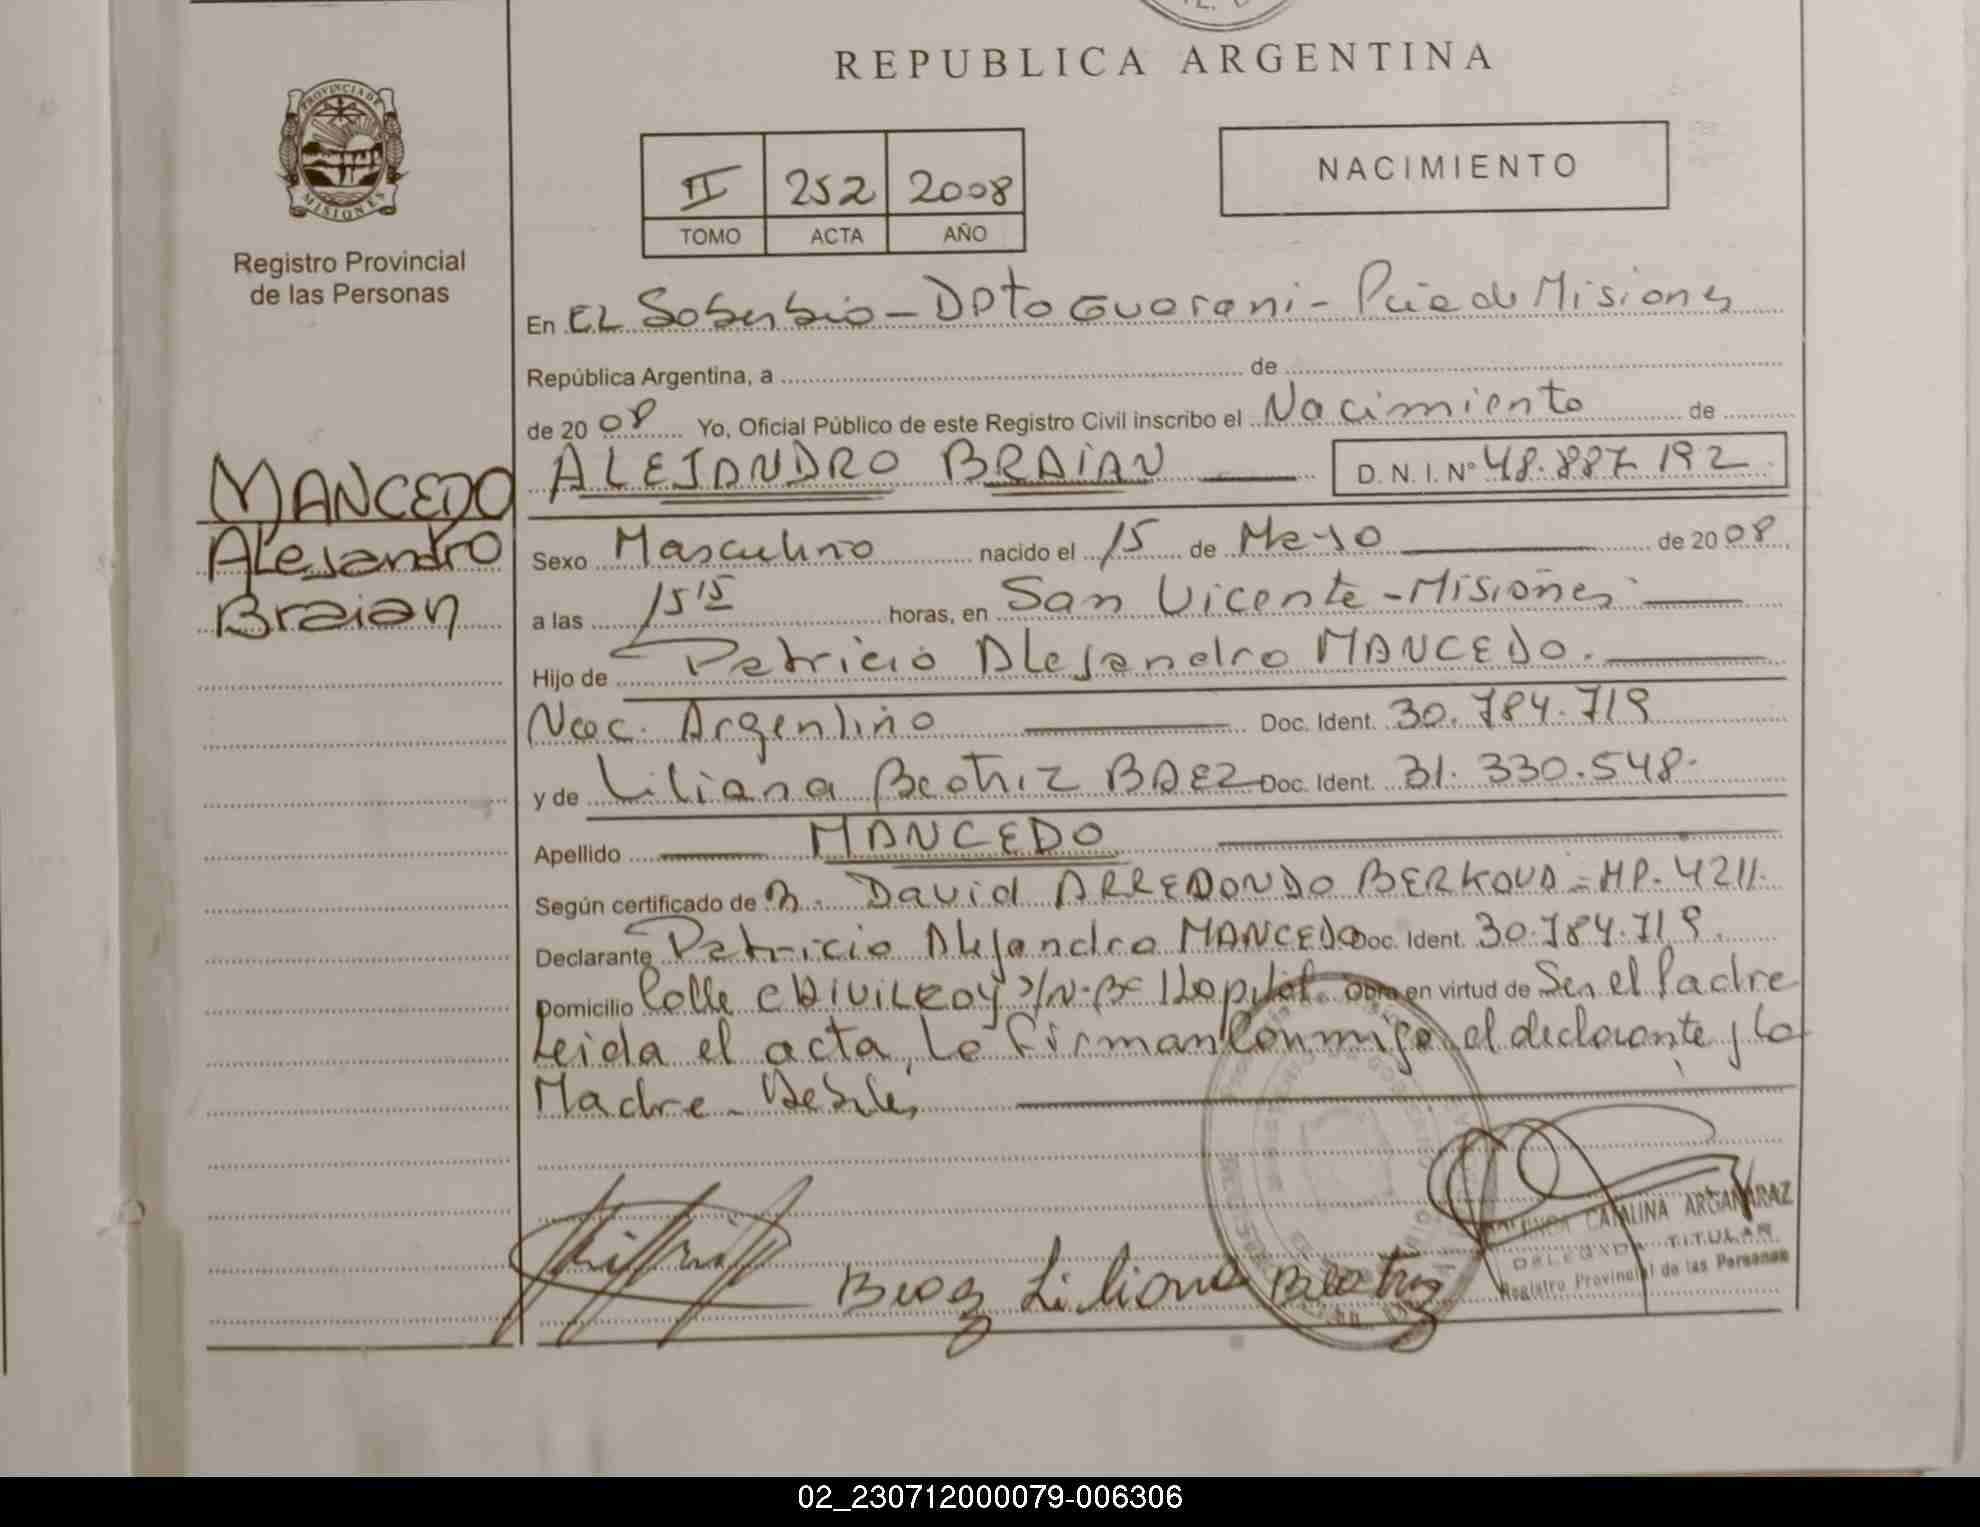 REPUBLICA ARGENTINA
PROVINCIA DE
MISIONES
Registro Provincial
de las Personas
II 252 2008
TOMO ACTA AÑO
NACIMIENTO
En EL Soberbio - Dpto Guarani - Pcia de Misiones
República Argentina, a de
de 20 08 Yo, Oficial Público de este Registro Civil inscribo el Nacimiento de
ALEJANDRO BRAIAN D.N.I. Nº 48.887.192
MANCEDO
Alejandro
Braian
Sexo Masculino nacido el 15 de Mayo de 2008
a las 15'15 horas, en San Vicente - Misiones
Hijo de Patricio Alejandro MANCEDO.
Nac. Argentino Doc. Ident. 30.784.719
y de Liliana Beatriz BAEZ Doc. Ident. 31.330.548.
Apellido MANCEDO
Según certificado de David ARREDONDO BERKOVA - MP. 4211.
Declarante Patricio Alejandro MANCEDO Doc. Ident. 30.784.719.
Domicilio Calle CHIVILCOY S/N. Bº Hopital. Obra en virtud de Ser el Padre
Leida el acta, la firman conmigo el declarante y la
Madre
Baez Liliana Beatriz
CATALINA ARGAÑARAZ
DELEGADA TITULAR
Registro Provincial de las Personas
02_230712000079-006306